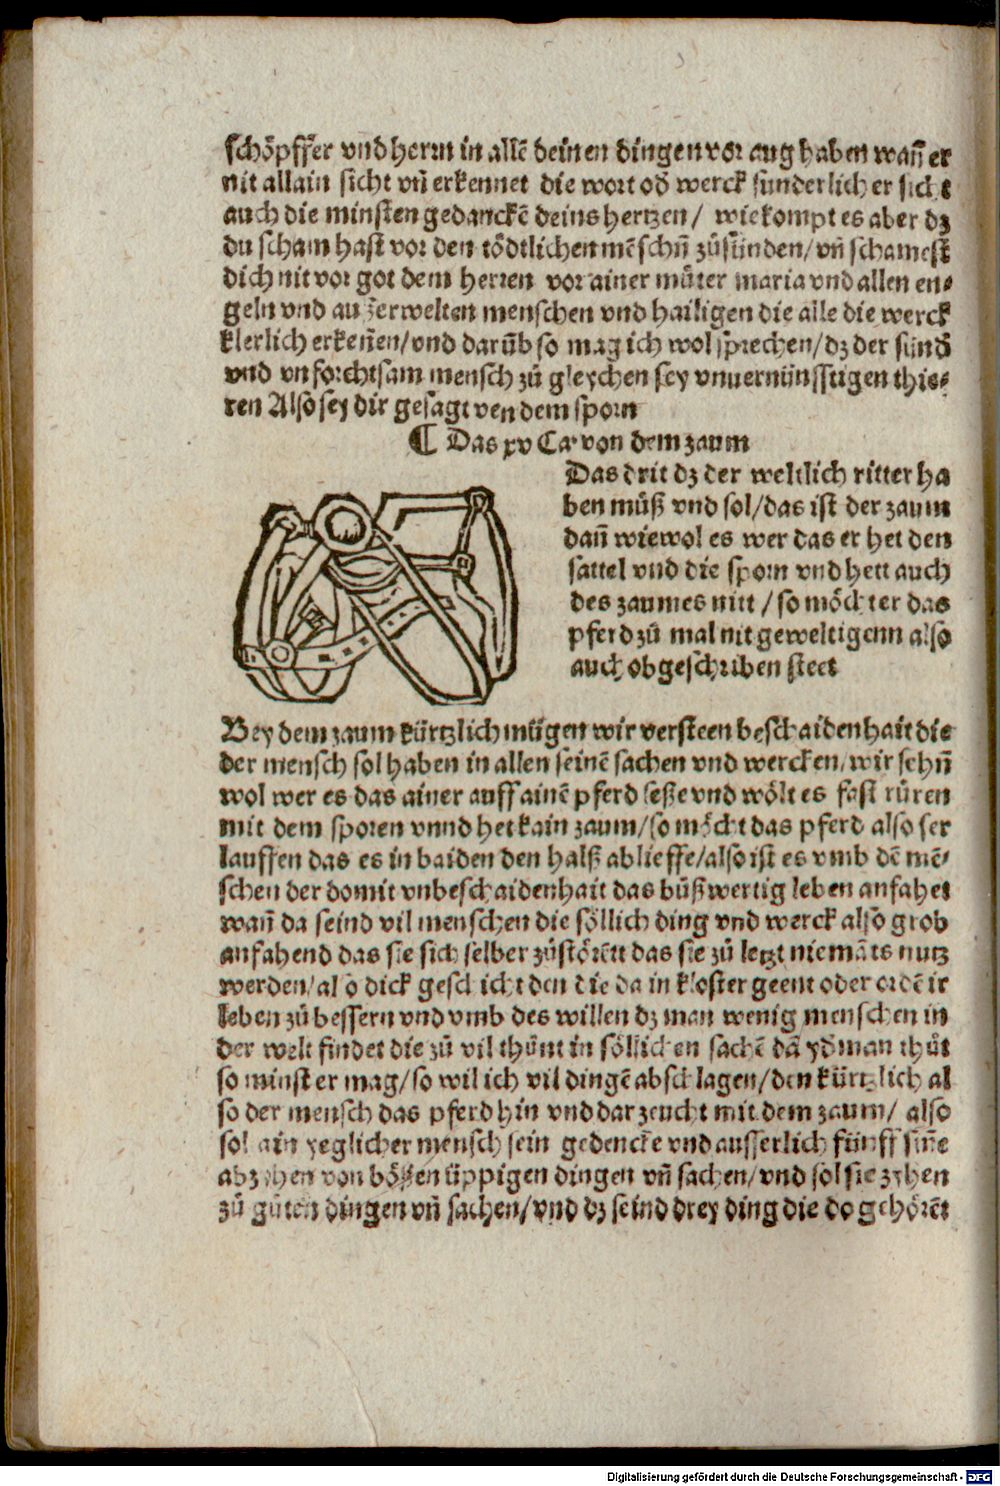 schöpffer vnd herrn in allē deinen dingen vor aug habeu wañ er
nit allain sicht vñ erkennet die wort od̄ werck sunderlich er sicht
auch die minsten gedanckē deins hertzen/ wie kompt es aber dz
du scham hast vor den tödtlichen mēschñ zů sünden/ vñ schamest
dich nit vor got dem herren vor ainer můter maria vnd allen en⸗
geln vnd au ßerwelten menschen vnd hailigen die alle die werck
klerlich erkeñen/ vnd darūb so mag ich wol sprechen/ dz der sünd̄
vnd vnforchtsam mensch zů gleychen sey vnuernünfftigen thie⸗
ren Also sey dir gesagt von dem sporn
¶ Das xv Ca· von dem zaum
Das drit dz der weltlich ritter ha
ben müß vnd sol/ das ist der zaum
dañ wiewol es wer das er het den
sattel vnd die sporn vnd hett auch
des zaumes nitt / so möchter das
pferd zů mal nit geweltigenn also
auch obgeschriben steet
Bey dem zaum kürtzlich mügen wir versteen beschaidenhait die
der mensch sol haben in allen seinē sachen vnd wercken/ wir sehñ
wol wer es das ainer auff ainē pferd seße vnd wölt es fast rüren
mit dem sporen vnnd het kain zaum/ so möcht das pferd also ser
lauffen das es in baiden den halß ablieffe/ also ist es vmb dē mē⸗
schen der do mit vnbeschaidenhait das bůßwertig leben anfahet
wañ da seind vil menschen die söllich ding vnd werck also grob
anfahend das sie sich selber zůstörētt das sie zů letzt niemāts nutz
werden/ also dick geschicht den die da in kloster geent oder ordē ir
leben zů bessern vnd vmb des willen dz man wenig menschen in
der welt findet die zů vil thůnt in söllichen sachē dā yd̄man thůt
so minst er mag/ so wil ich vil dingē abschlagen/ den kürtzlich al
so der mensch das pferd hin vnd dar zeucht mit dem zaum/ also
sol ain yeglicher mensch sein gedencke vnd ausserlich fünff siñe
abzihen von bößen üppigen dingen vñ sachen/ vnd sol sie zyhen
zů gůten dingen vñ sachen/ vnd dz seind drey ding die do gehörēt
Digitalisierung gefördert durch die Deutsche Forschungsgemeinschaft - DFG